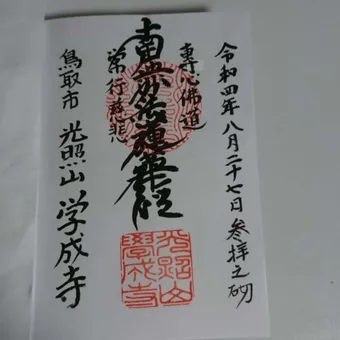 令和四年八月二十七日 参拝之砌
専心佛道
南無妙法蓮華経
常行慈悲
鳥取市 光照山 学成寺
光照山
學成寺